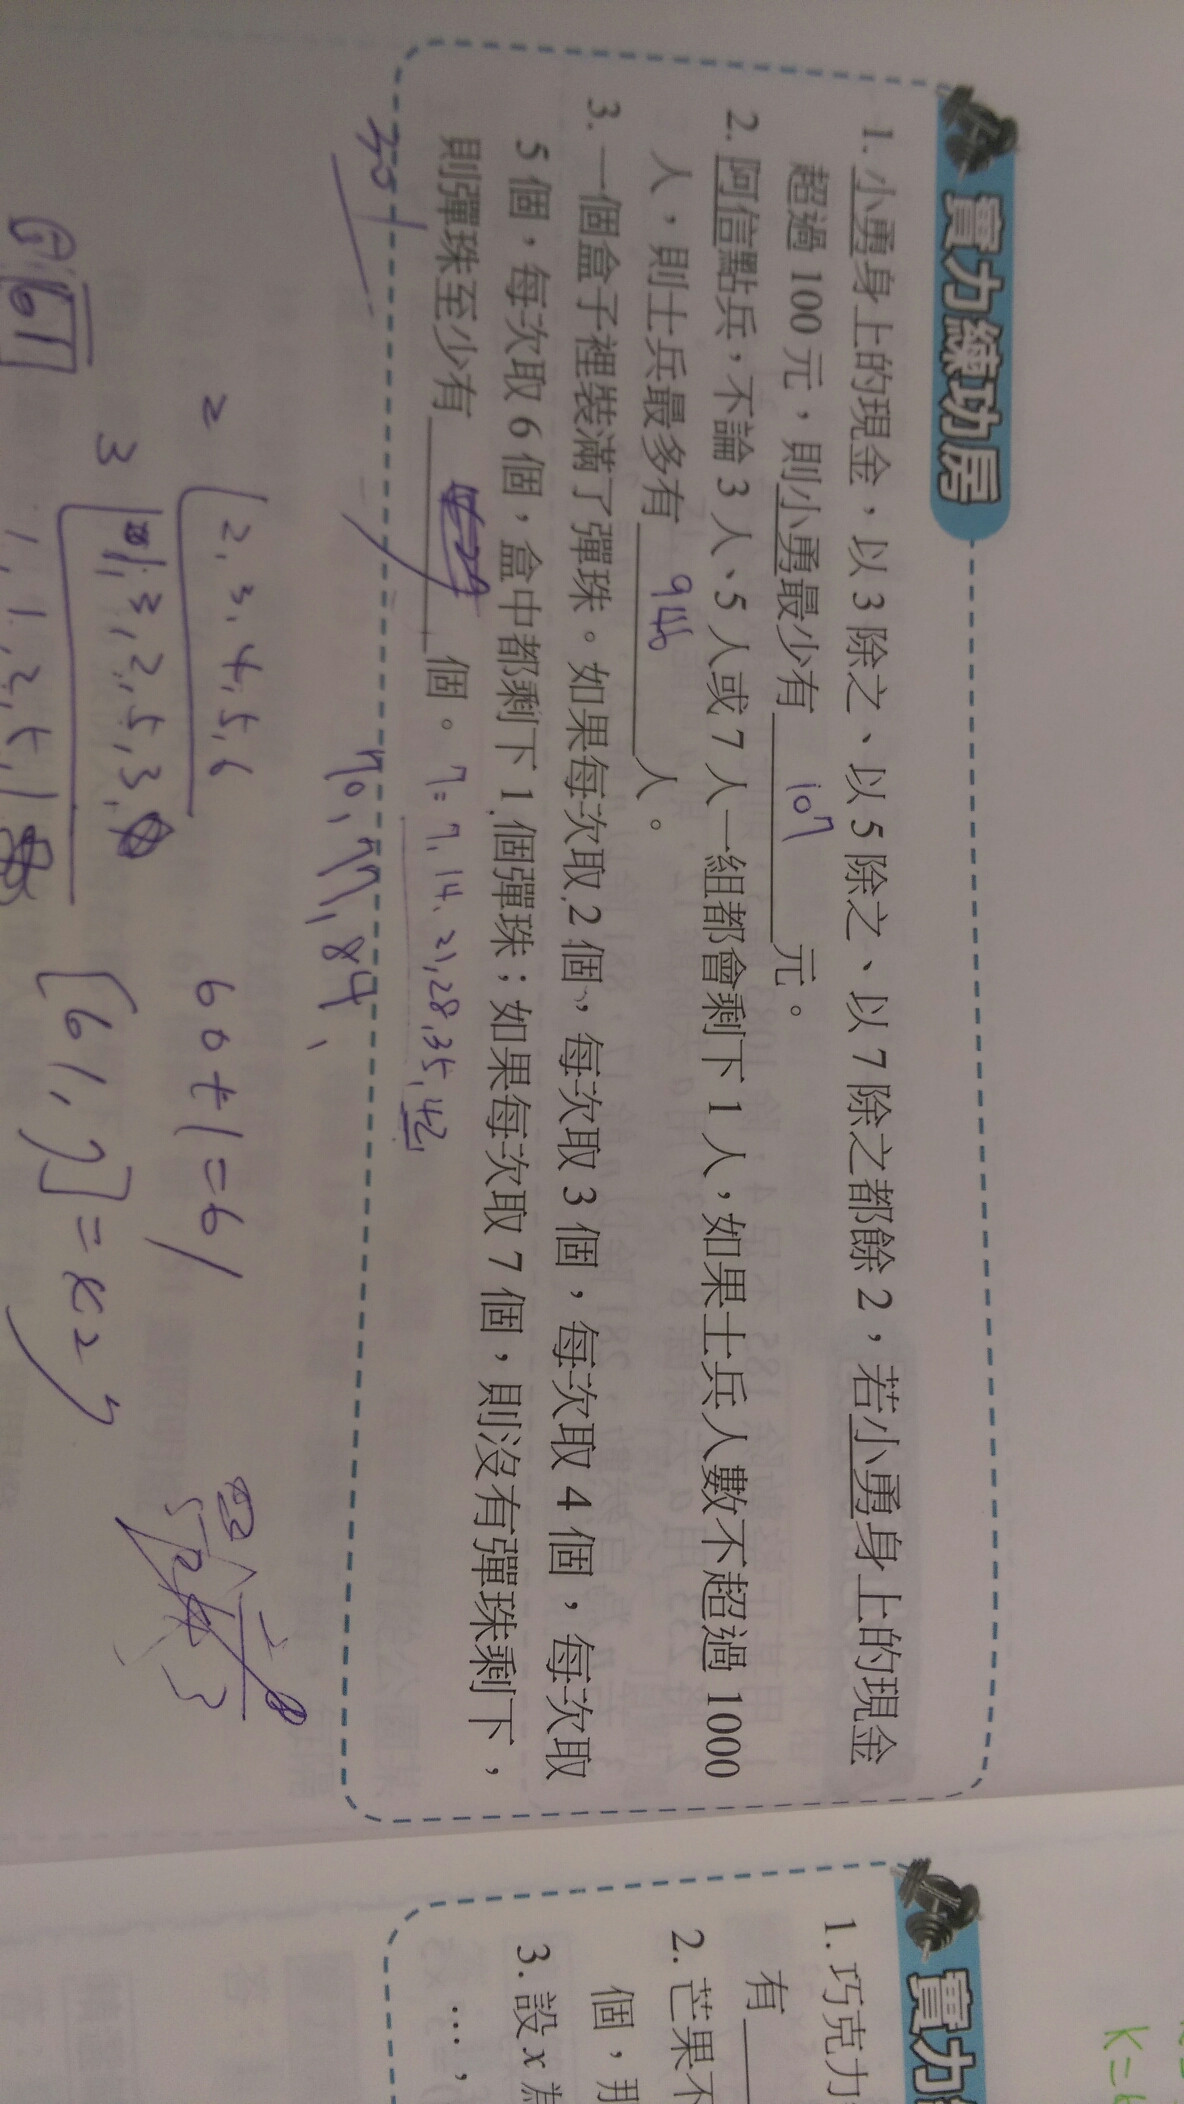 實力練功房
1. 小勇身上的現金，以 3 除之、以 5 除之、以 7 除之都餘 2，若小勇身上的現金
超過 100 元，則小勇最少有 107 元。
2. 阿信點兵，不論 3 人、5 人或 7 人一組都會剩下 1 人，如果士兵人數不超過 1000
人，則士兵最多有 946 人。
3. 一個盒子裡裝滿了彈珠。如果每次取 2 個，每次取 3 個，每次取 4 個，每次取
5 個，每次取 6 個，盒中都剩下 1 個彈珠；如果每次取 7 個，則沒有彈珠剩下，
則彈珠至少有 個。 7= 7, 14, 21, 28, 35, 42,
70, 77, 84,
2 2, 3, 4, 5, 6
60+1=61
3 1, 3, 2, 5, 3
1, 1, 2, 5, 1
[61, 7] =
61
實力
1. 巧克力
有
2. 芒果不
個，用
3. 設 x 為
…，
K=